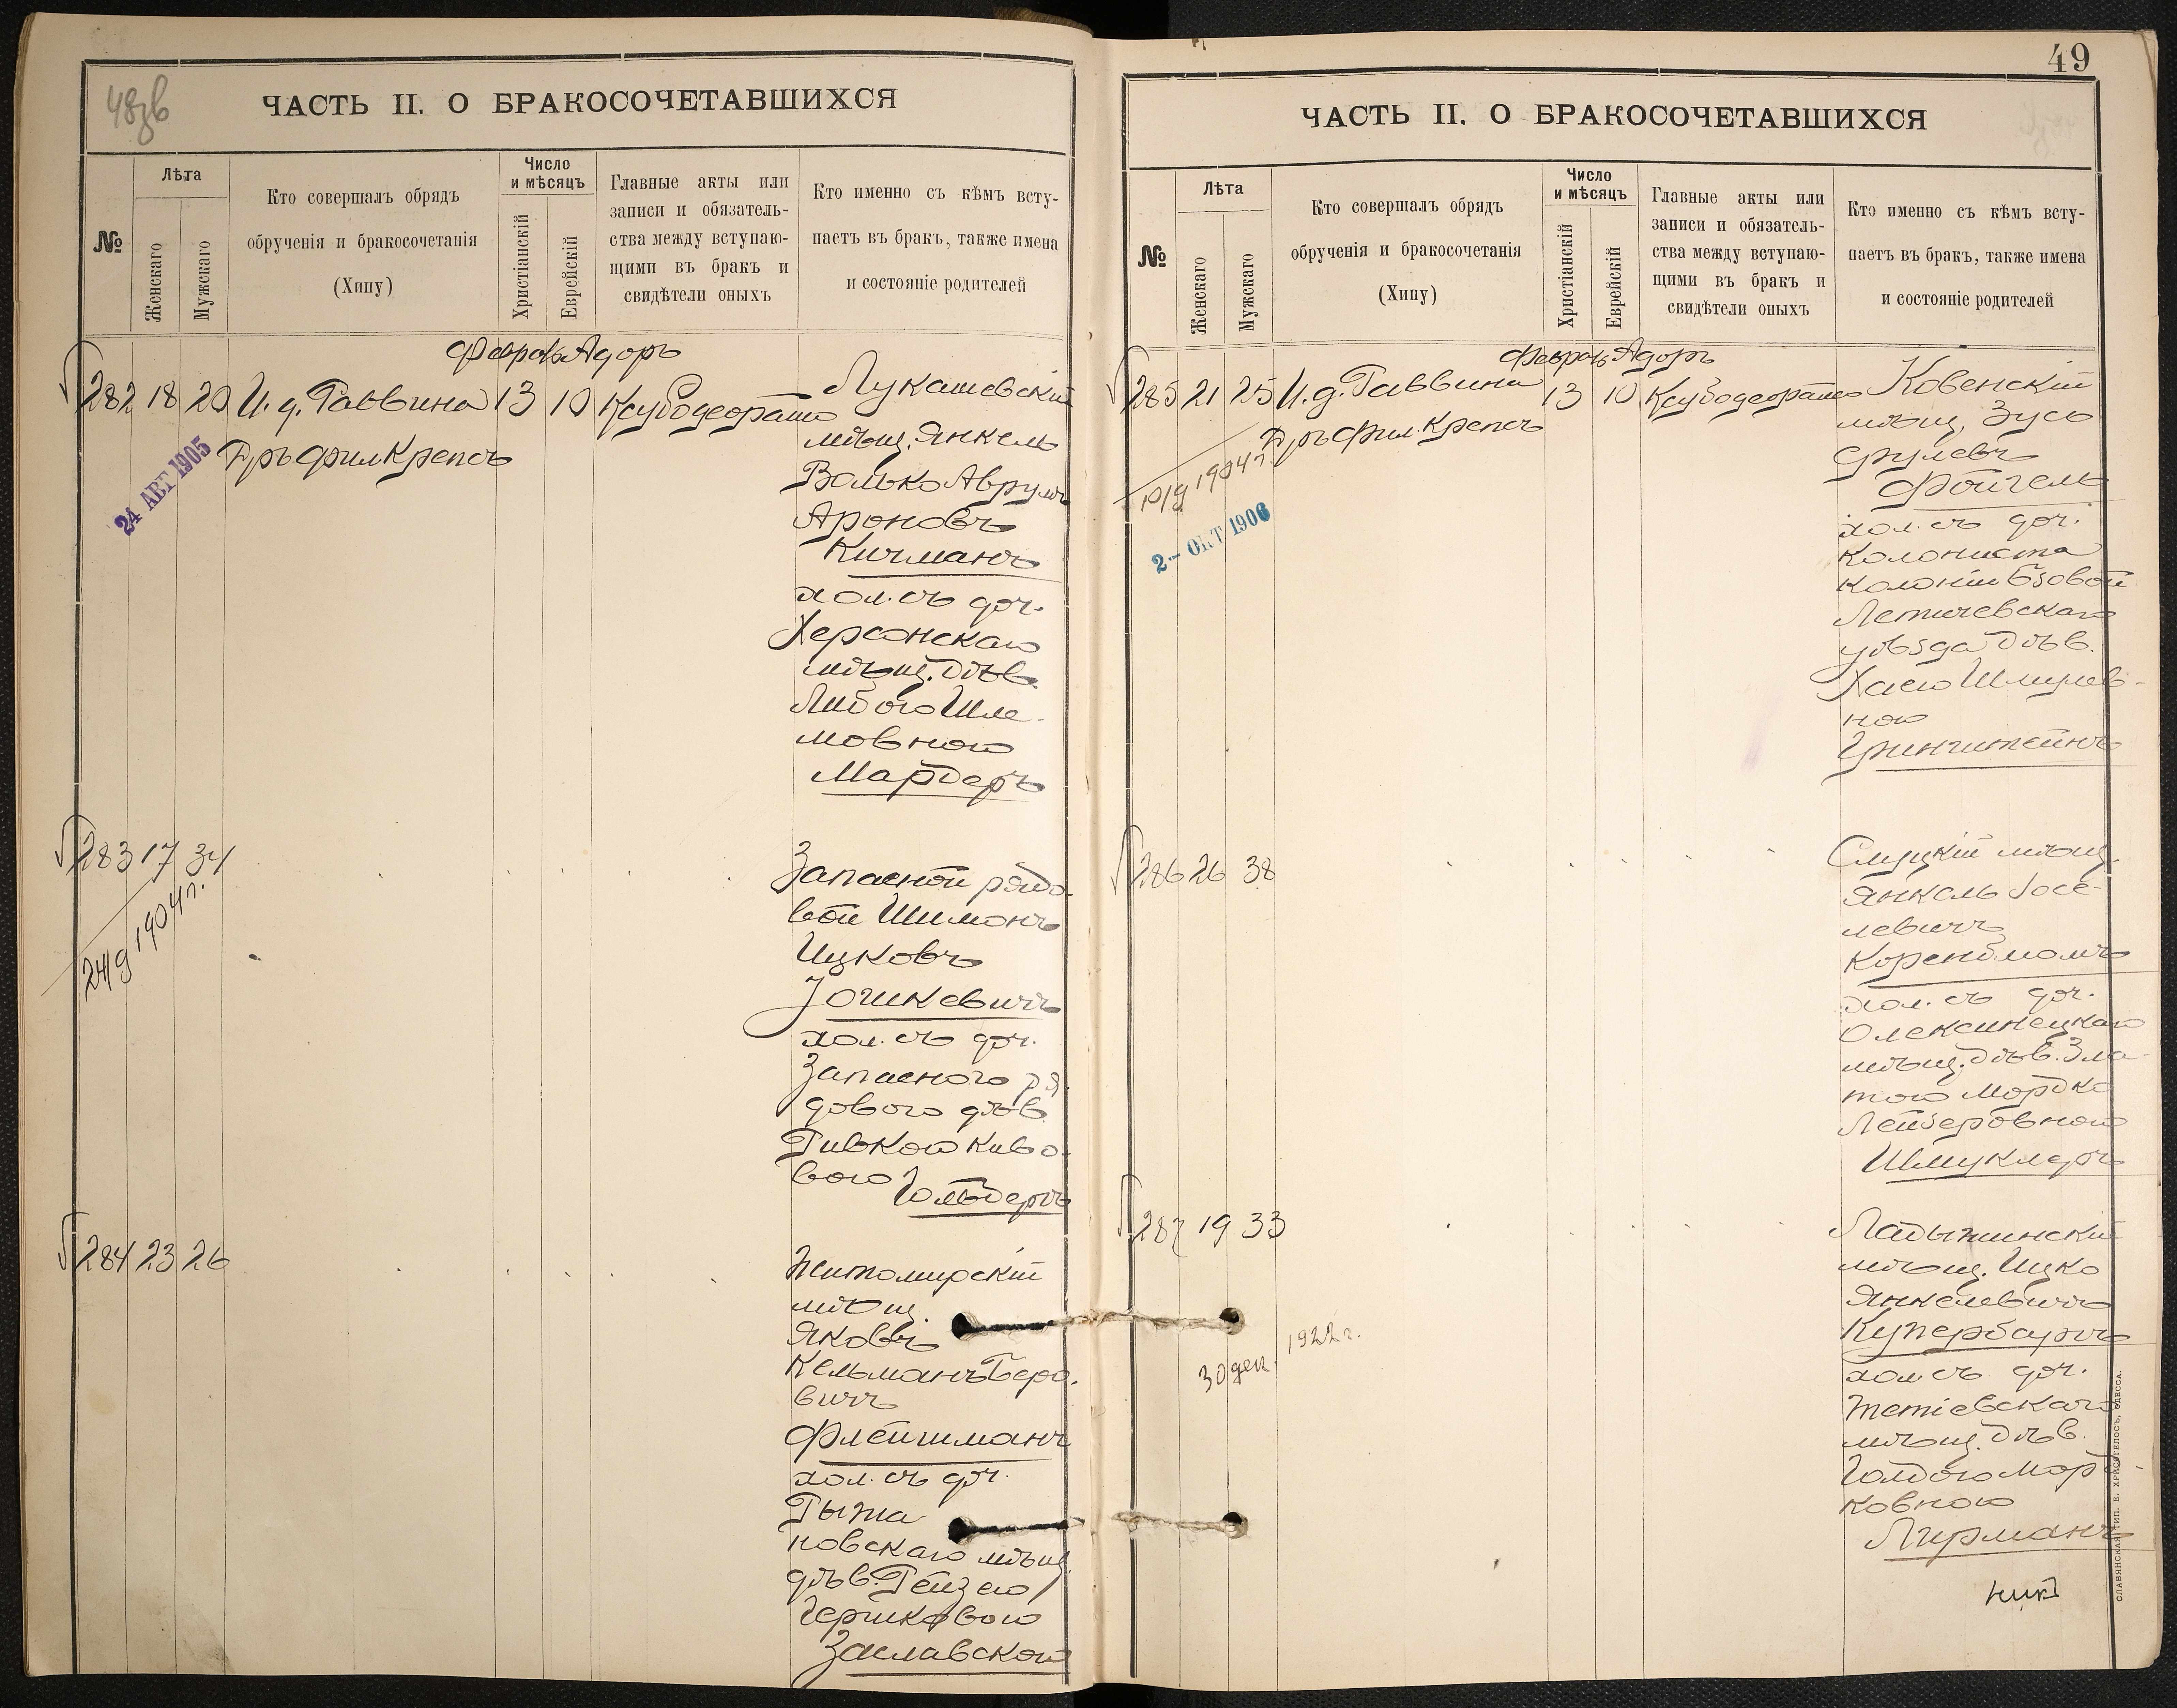 48зв
ЧАСТЬ II. О БРАКОСОЧЕТАВШИХСЯ
№
Лѣта
Женскаго
Мужскаго
Кто совершалъ обрядъ
обрученія и бракосочетанія
(Хипу)
Число
и мѣсяцъ
Христіанскій
Еврейскій
Главные акты или
записи и обязатель-
ства между вступаю-
щими въ бракъ и
свидѣтели оныхъ
Кто именно съ кѣмъ всту-
паетъ въ бракъ, также имена
и состояніе родителей
Февраль Адоръ
282 18 20 И. д. Раввина 13 10 Ксубодеорато
Дръ фил Крепсъ
24 АВГ 1905
Лукашевскій
мѣщ. Янкель
Волько Аврумъ
Ароновъ
Кичманъ
хол. съ доч.
Херсонскаго
мѣщ. дѣв.
Либою Шле-
мовною
Мардеръ
283 17 34
24/9 1904 г.
Запасной рядо-
вой Шимонъ
Ицковъ
Іошкевичъ
хол. съ доч.
Запасного ря-
дового дѣв.
Ривкою Киво-
вою
284 23 26
Житомирскій
мѣщ.
Яковъ
Кельманъ Беро-
вичъ
Флейшманъ
хол. съ доч.
Рыжа-
новскаго мѣщ.
дѣв. Рейзею
Гершковою
Заславскою
49
ЧАСТЬ II. О БРАКОСОЧЕТАВШИХСЯ
№
Лѣта
Женскаго
Мужскаго
Кто совершалъ обрядъ
обрученія и бракосочетанія
(Хипу)
Число
и мѣсяцъ
Христіанскій
Еврейскій
Главные акты или
записи и обязатель-
ства между вступаю-
щими въ бракъ и
свидѣтели оныхъ
Кто именно съ кѣмъ всту-
паетъ въ бракъ, также имена
и состояніе родителей
Февраль Адоръ
285 21 25 И. д. Раввина 13 10 Ксубодеорато
Дръ фил. Крепсъ
10/9 1904 г.
2 - ОКТ 1906
Ковенскій
мѣщ. Зусь
Срулевъ
Фойгель
хол. съ доч.
Колониста
колоніи Бзовой
Летичевскаго
уѣзда дѣв.
Хаею Шмулев-
ною
Гринштейнъ
286 26 38
Слуцкій мѣщ.
Янкель Іосе-
левичъ
Коренблюмъ
хол. съ доч.
Олексинецкаго
мѣщ. дѣв. Зла-
тою Мордко
Лейзеровною
Шмуклеръ
287 19 33
30 дек. 1922 г.
Ладыжинскій
мѣщ. Ицко
Янкелевичъ
Купербаумъ
хол. съ доч.
Тетіевскаго
мѣщ. дѣв.
Голдою Морд-
ковною
Лирманъ
СЛАВЯНСКАЯ ТИП. Е. ХРИСОГЕЛОСЪ, ОДЕССА.